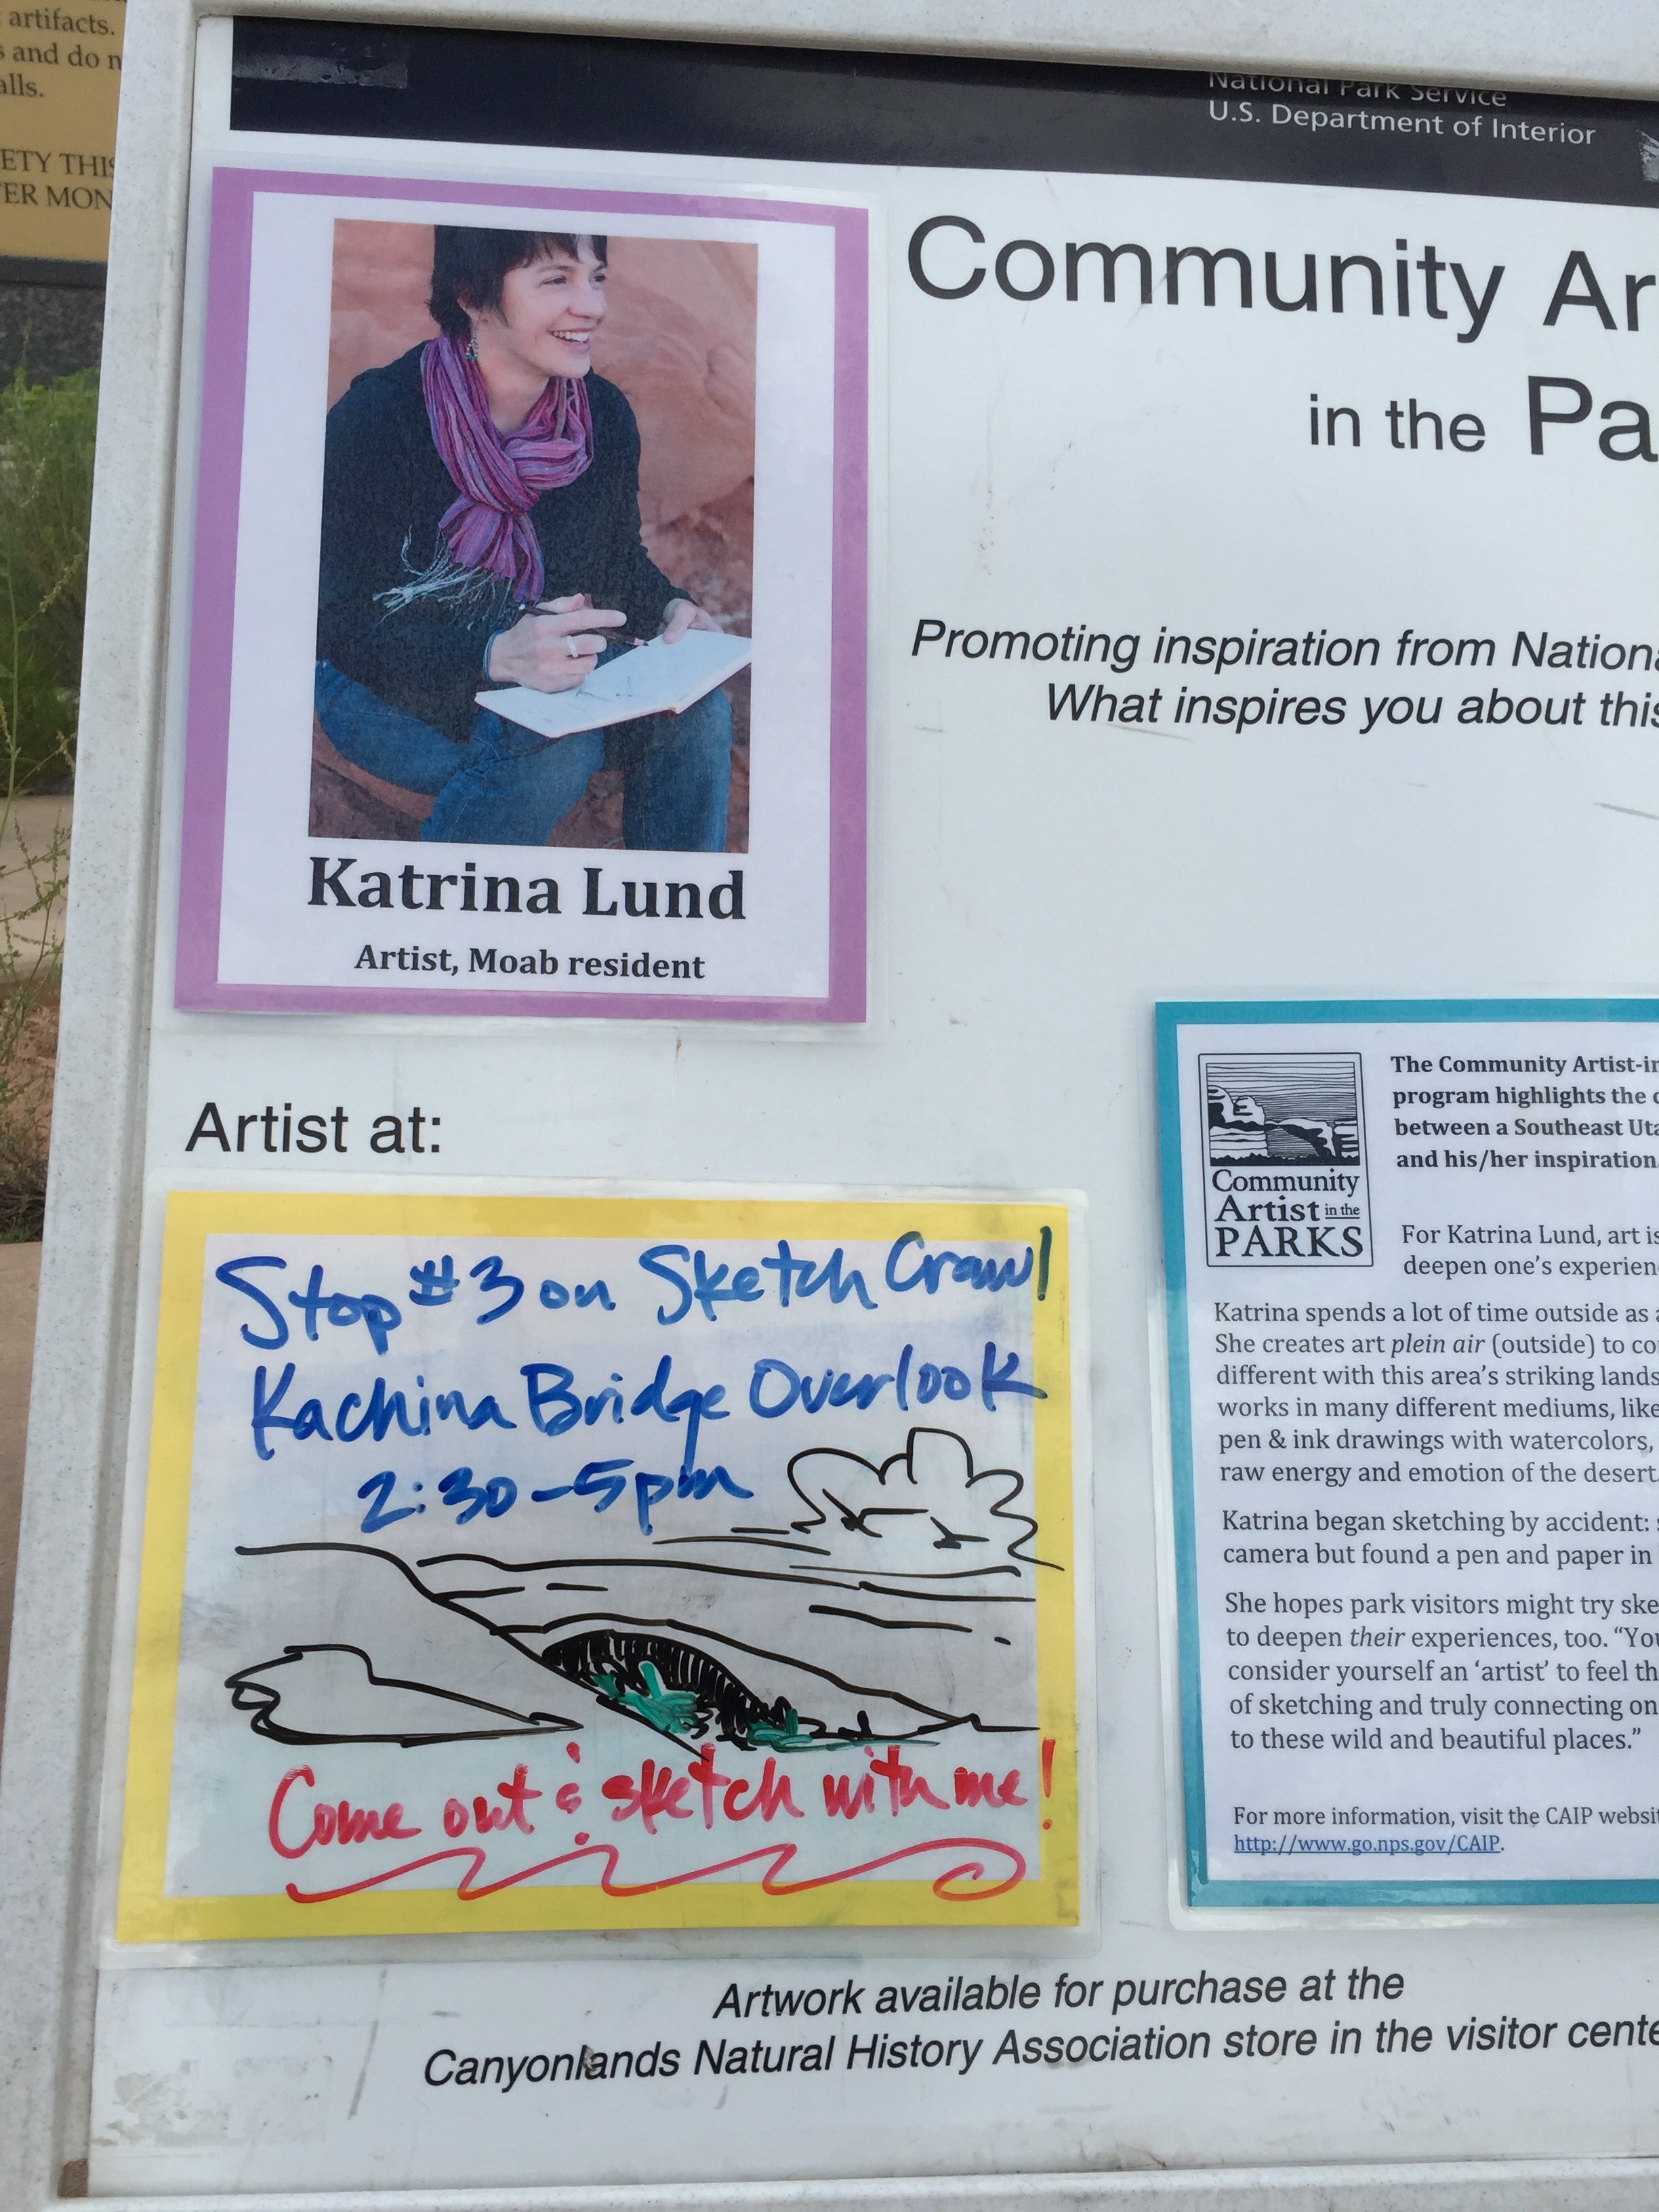 artifacts.
and do n
alls.
ETY THIS
ER MON
National Park Service
U.S. Department of Interior
Community Ar
in the Pa
Promoting inspiration from Nationa
What inspires you about this
Katrina Lund
Artist, Moab resident
Artist at:
Stop #3 on Sketch Crawl
Kachina Bridge Overlook
2:30-5pm
Come out & sketch with me!
Community
Artist in the
PARKS
The Community Artist-in
program highlights the c
between a Southeast Uta
and his/her inspiration.
For Katrina Lund, art is
deepen one's experien
Katrina spends a lot of time outside as a
She creates art plein air (outside) to co
different with this area's striking lands
works in many different mediums, like
pen & ink drawings with watercolors,
raw energy and emotion of the desert.
Katrina began sketching by accident: s
camera but found a pen and paper in
She hopes park visitors might try ske
to deepen their experiences, too. "You
consider yourself an 'artist' to feel th
of sketching and truly connecting on
to these wild and beautiful places."
For more information, visit the CAIP websit
http://www.go.nps.gov/CAIP.
Artwork available for purchase at the
Canyonlands Natural History Association store in the visitor cente